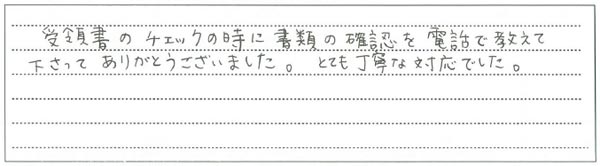 受領書のチェックの時に書類の確認を電話で教えて
下さってありがとうございました。とても丁寧な対応でした。